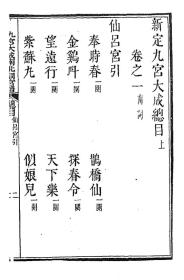 新定九宮大成總目上
卷之一 南詞
仙呂宮引
奉時春 一闋
鵲橋仙 一闋
金雞叫 一闋
探春令 一闋
望遠行 一闋
天下樂 一闋
紫蘇丸 一闋
似娘兒 一闋
九宮大成南北詞宮譜
總目
仙呂宮引